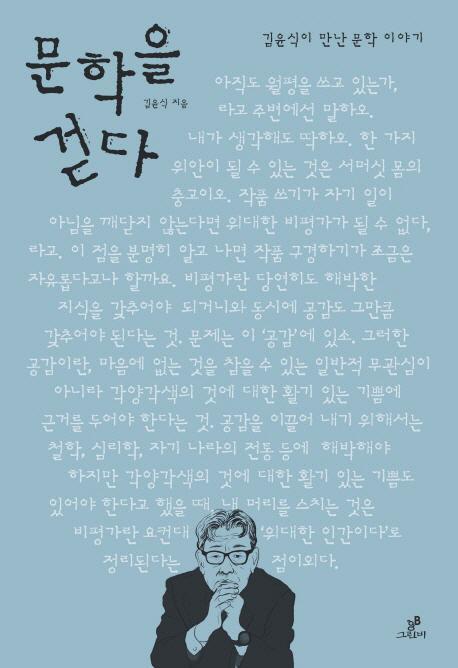 김윤식이 만난 문학 이야기
문학을
걷다
김윤식 지음
아직도 월평을 쓰고 있는가,
라고 주변에선 말하오.
내가 생각해도 딱하오. 한 가지
위안이 될 수 있는 것은 서머싯 몸의
충고이오. 작품 쓰기가 자기 일이
아님을 깨닫지 않는다면 위대한 비평가가 될 수 없다,
라고. 이 점을 분명히 알고 나면 작품 구경하기가 조금은
자유롭다고나 할까요. 비평가란 당연히도 해박한
지식을 갖추어야 되거니와 동시에 공감도 그만큼
갖추어야 된다는 것. 문제는 이 '공감'에 있소. 그러한
공감이란, 마음에 없는 것을 참을 수 있는 일반적 무관심이
아니라 각양각색의 것에 대한 활기 있는 기쁨에
근거를 두어야 한다는 것. 공감을 이끌어 내기 위해서는
철학, 심리학, 자기 나라의 전통 등에 해박해야
하지만 각양각색의 것에 대한 활기 있는 기쁨도
있어야 한다고 했을 때, 내 머리를 스치는 것은
비평가란 요컨대 '위대한 인간이다'로
정리된다는 점이외다.
gB
그린비